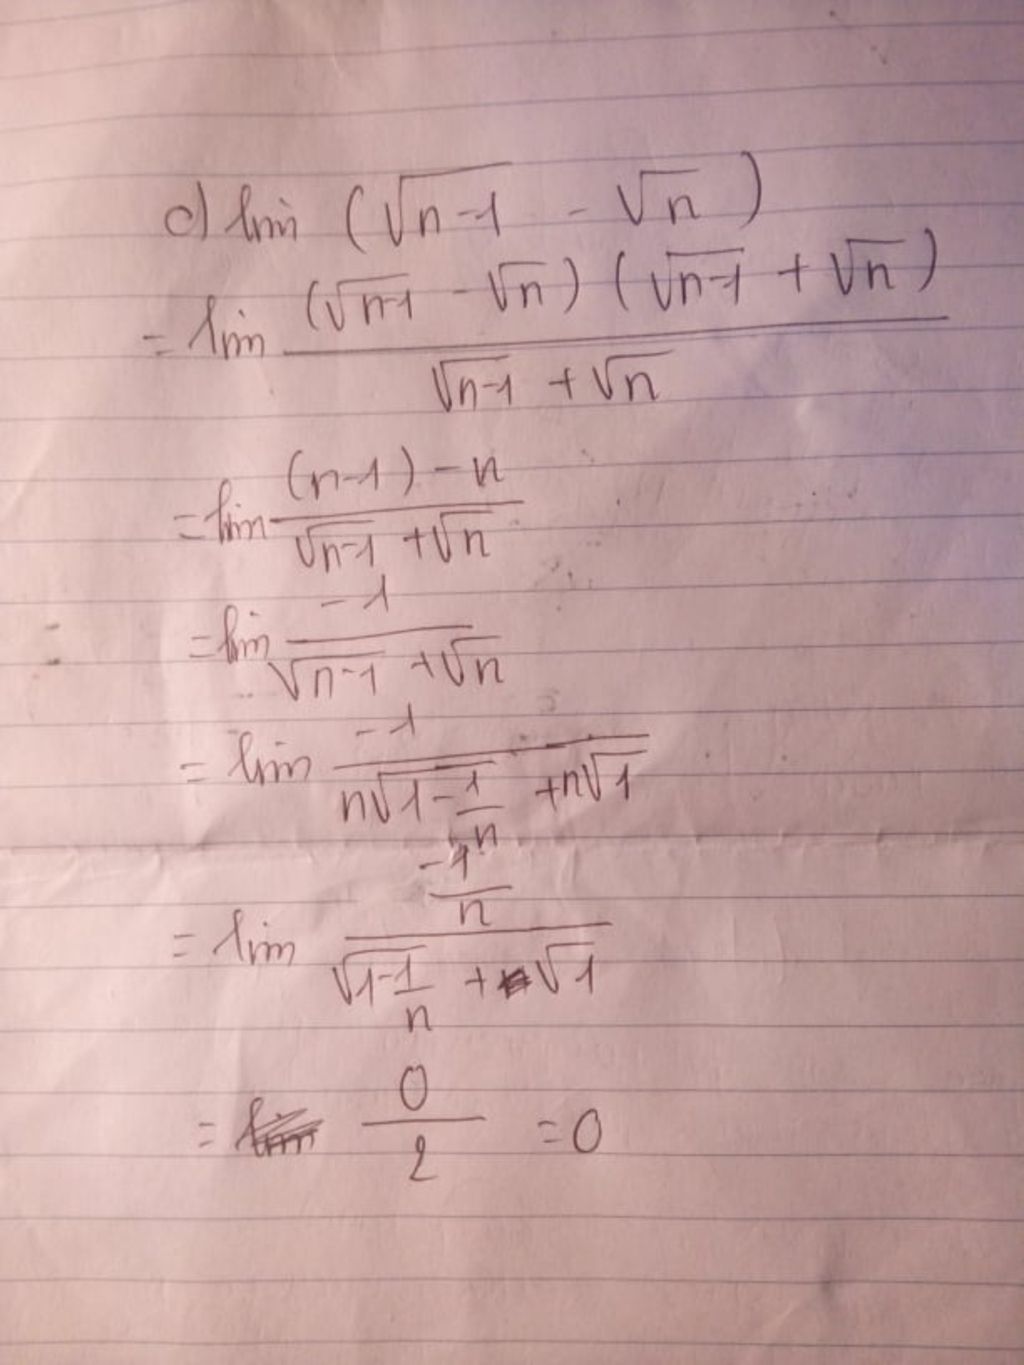 c) lim (√n-1 - √n)
= lim (√n-1 - √n) (√n-1 + √n) / √n-1 + √n
= lim (n-1) - n / √n-1 + √n
= lim -1 / √n-1 + √n
= lim -1 / n√1-1/n + n√1
= lim -1/n / √1-1/n + √1
= 0/2 = 0